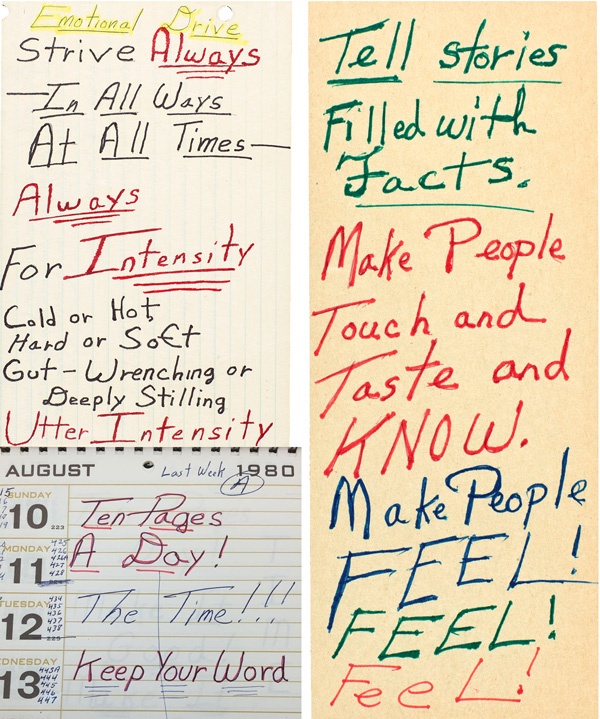 Emotional Drive
Strive Always
—In All Ways
At All Times—
Always
For Intensity
Cold or Hot,
Hard or Soft
Gut-Wrenching or
Deeply Stilling
Utter Intensity
AUGUST Last Week 1980
A
SUNDAY
10 223
Ten Pages
MONDAY
A Day!
11
425
426
426A
427
428
TUESDAY
The Time!!!
12 225
434
435
436
437
438
Keep Your Word
13
443A
444
445
446
447
Tell stories
Filled with
Facts.
Make People
Touch and
Taste and
KNOW.
Make People
FEEL!
FEEL!
FeeL!